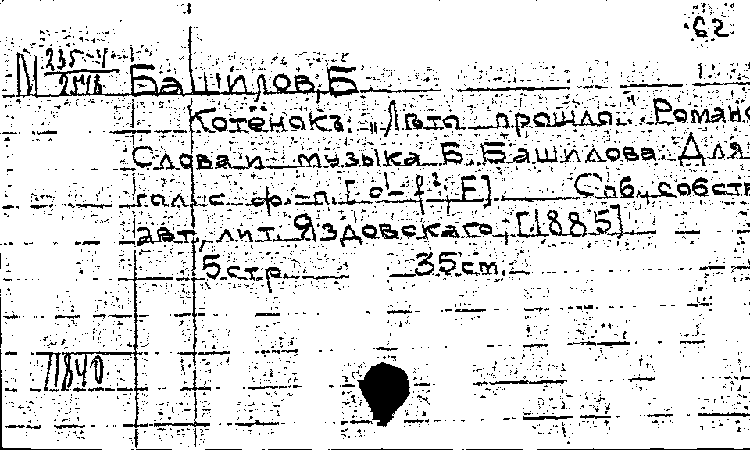 62
М 235-4
Башилов, Б.
2543
Котёнокъ. „Лѣто прошло". Романс
Слова и музыка Б. Башилова. Для
гол. с ф.-п. [d¹-f², F]. Спб., собств.
авт., лит. Яздовскаго, [1885]
5 стр. 35 см.
11840